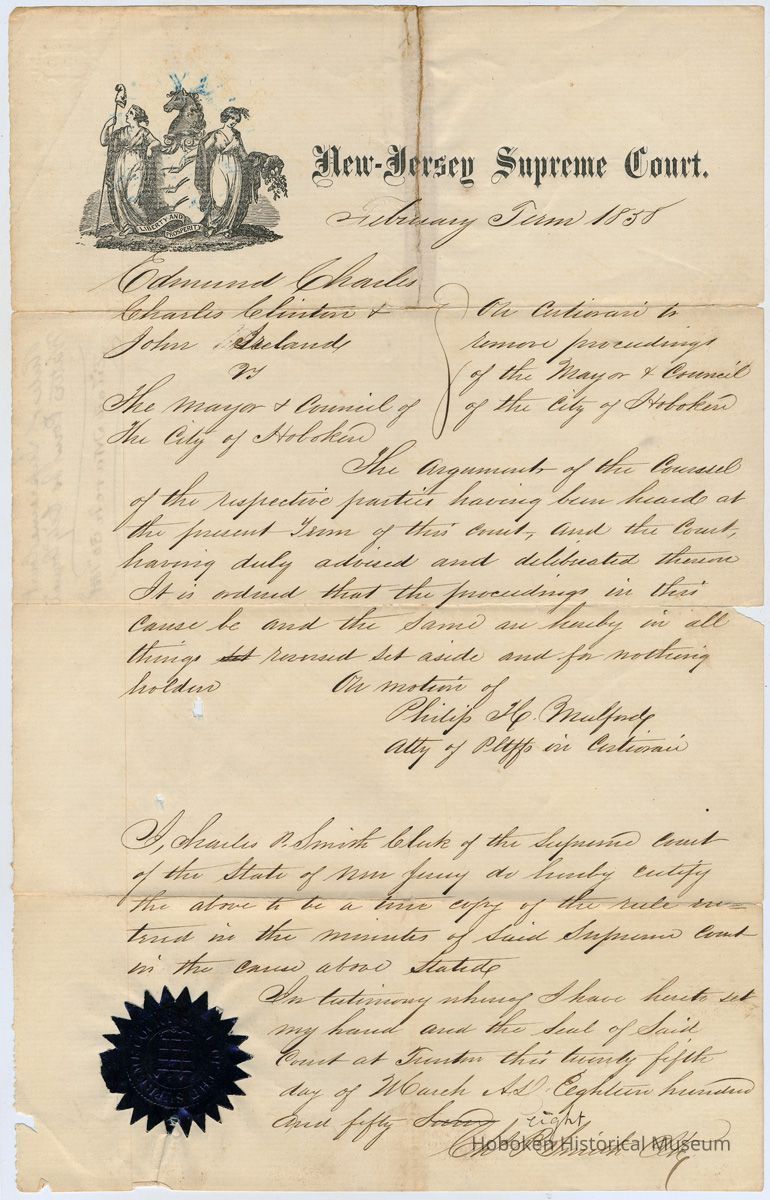 LIBERTY AND PROSPERITY
New-Jersey Supreme Court.
February Term 1858
Edmund Charles
Charles Clinton &
John Ireland
vs
The Mayor & Council of
The City of Hoboken
On Certiorari to
remove proceedings
of the Mayor & Council
of the City of Hoboken
The Arguments of the Counsel
of the respective parties having been heard at
the present Term of this court, and the Court,
having duly advised and deliberated thereon
It is ordered that the proceedings in this
cause be and the same are hereby in all
things set reversed set aside and for nothing
holden
On motion of
Philip H. Mulford
Atty of Pltffs in Certiorari
I, Charles P. Smith Clerk of the Supreme Court
of the State of New Jersey do hereby certify
the above to be a true copy of the rule en=
tered in the minutes of said Supreme Court
in the cause above stated
In testimony whereof I have hereto set
my hand and the seal of said
Court at Trenton this twenty fifth
day of March AD Eighteen hundred
and fifty eight
Chs P. Smith Clk
Hoboken Historical Museum